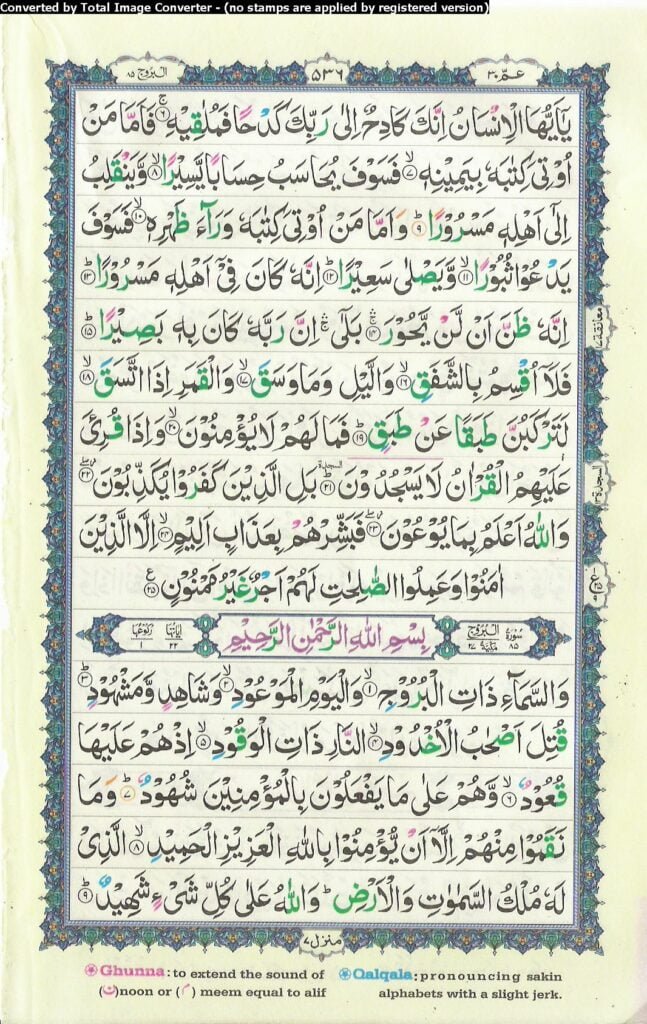 Converted by Total Image Converter - (no stamps are applied by registered version)
البروج ٨٥
٥٣٦
عمّ ٣٠
يٰۤاَيُّهَا الۡاِنۡسَانُ اِنَّكَ كَادِحٌ اِلٰى رَبِّكَ كَدۡحًا فَمُلٰقِيۡهِ ۚ‏﴿۶﴾ فَاَمَّا مَنۡ
اُوۡتِىَ كِتٰبَهٗ بِيَمِيۡنِهٖۙ‏﴿۷﴾ فَسَوۡفَ يُحَاسَبُ حِسَابًا يَّسِيۡرًاۙ‏﴿۸﴾ وَّيَنۡقَلِبُ
اِلٰٓى اَهۡلِهٖ مَسۡرُوۡرًاؕ‏﴿۹﴾ وَاَمَّا مَنۡ اُوۡتِىَ كِتٰبَهٗ وَرَآءَ ظَهۡرِهٖۙ‏﴿۱۰﴾ فَسَوۡفَ
يَدۡعُوۡا ثُبُوۡرًاۙ‏﴿۱۱﴾ وَّيَصۡلٰى سَعِيۡرًاؕ‏﴿۱۲﴾ اِنَّهٗ كَانَ فِىۡۤ اَهۡلِهٖ مَسۡرُوۡرًاؕ‏﴿۱۳﴾
اِنَّهٗ ظَنَّ اَنۡ لَّنۡ يَّحُوۡرَۛۚ‏﴿۱۴﴾ بَلٰٓىۛۚ اِنَّ رَبَّهٗ كَانَ بِهٖ بَصِيۡرًاؕ‏﴿۱۵﴾
فَلَاۤ اُقۡسِمُ بِالشَّفَقِۙ‏﴿۱۶﴾ وَالَّيۡلِ وَمَا وَسَقَۙ‏﴿۱۷﴾ وَالۡقَمَرِ اِذَا اتَّسَقَۙ‏﴿۱۸﴾
لَتَرۡكَبُنَّ طَبَقًا عَنۡ طَبَقٍؕ‏﴿۱۹﴾ فَمَا لَهُمۡ لَا يُؤۡمِنُوۡنَۙ‏﴿۲۰﴾ وَاِذَا قُرِئَ
عَلَيۡهِمُ الۡقُرۡاٰنُ لَا يَسۡجُدُوۡنَؕ‏﴿۲۱﴾ بَلِ الَّذِيۡنَ كَفَرُوۡا يُكَذِّبُوۡنَ‏﴿۲۲﴾
وَاللّٰهُ اَعۡلَمُ بِمَا يُوۡعُوۡنَ‏﴿۲۳﴾ فَبَشِّرۡهُمۡ بِعَذَابٍ اَلِيۡمٍۙ‏﴿۲۴﴾ اِلَّا الَّذِيۡنَ
اٰمَنُوۡا وَعَمِلُوا الصّٰلِحٰتِ لَهُمۡ اَجۡرٌ غَيۡرُ مَمۡنُوۡنٍ‏﴿۲۵﴾
سورة البروج مكية ٨٥ ٢٧
بِسۡمِ اللّٰهِ الرَّحۡمٰنِ الرَّحِيۡمِ
اٰياتها ٢٢ ركوعها ١
وَالسَّمَآءِ ذَاتِ الۡبُرُوۡجِۙ‏﴿۱﴾ وَالۡيَوۡمِ الۡمَوۡعُوۡدِۙ‏﴿۲﴾ وَشَاهِدٍ وَّمَشۡهُوۡدٍؕ‏﴿۳﴾
قُتِلَ اَصۡحٰبُ الۡاُخۡدُوۡدِۙ‏﴿۴﴾ النَّارِ ذَاتِ الۡوَقُوۡدِۙ‏﴿۵﴾ اِذۡ هُمۡ عَلَيۡهَا
قُعُوۡدٌۙ‏﴿۶﴾ وَّهُمۡ عَلٰى مَا يَفۡعَلُوۡنَ بِالۡمُؤۡمِنِيۡنَ شُهُوۡدٌؕ‏﴿۷﴾ وَمَا
نَقَمُوۡا مِنۡهُمۡ اِلَّاۤ اَنۡ يُّؤۡمِنُوۡا بِاللّٰهِ الۡعَزِيۡزِ الۡحَمِيۡدِۙ‏﴿۸﴾ الَّذِىۡ
لَهٗ مُلۡكُ السَّمٰوٰتِ وَالۡاَرۡضِؕ وَاللّٰهُ عَلٰى كُلِّ شَىۡءٍ شَهِيۡدٌؕ‏﴿۹﴾
معانقة
السجدة
منزل ٧
Ghunna: to extend the sound of
(ن)noon or (م) meem equal to alif
Qalqala: pronouncing sakin
alphabets with a slight jerk.